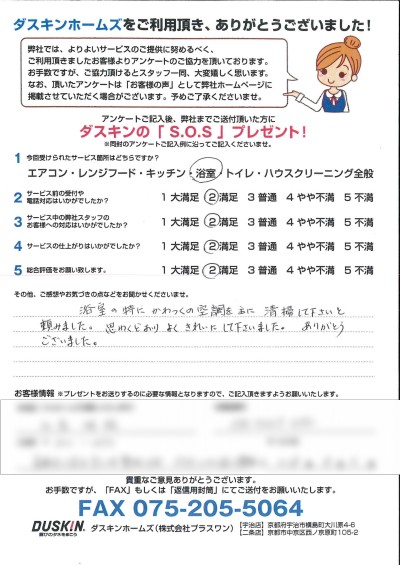 ダスキンホームズをご利用頂き、ありがとうございました！
弊社では、よりよいサービスのご提供に努めるべく、
ご利用頂きましたお客様よりアンケートのご協力を頂いております。
お手数ですが、ご協力頂けるとスタッフ一同、大変嬉しく思います。
なお、頂いたアンケートは「お客様の声」として弊社ホームページに
掲載させていただく場合がございます。予めご了承くださいませ。
アンケートご記入後、弊社までご送付頂いた方に
ダスキンの「 S.O.S 」プレゼント！
※同封のアンケートご記入例に沿ってご記入くださいませ。
1 今回受けられたサービス箇所はどちらですか？
エアコン・レンジフード・キッチン・浴室・トイレ・ハウスクリーニング全般
2 サービス前の受付や
電話対応はいかがでしたか？ 1 大満足 2 満足 3 普通 4 やや不満 5 不満
3 サービス中の弊社スタッフの
お客様への対応はいかがでしたか？ 1 大満足 2 満足 3 普通 4 やや不満 5 不満
4 サービスの仕上がりはいかがでしたか？ 1 大満足 2 満足 3 普通 4 やや不満 5 不満
5 総合評価をお願い致します。 1 大満足 2 満足 3 普通 4 やや不満 5 不満
その他、ご感想やお気づきの点などをお聞かせくださいませ。
浴室の特にかわっくの空調を主に清掃して下さいと
頼みました。思わくどおりよくきれいにして下さいました。ありがとう
ございました。
お客様情報 ※プレゼントをお送りするのに必要な情報となりますので、ご記入頂きますようお願いいたします。
貴重なご意見ありがとうございます。
お手数ですが、「FAX」もしくは「返信用封筒」にてご送付をお願いいたします。
FAX 075-205-5064
DUSKIN
喜びのタネをまこう
ダスキンホームズ（株式会社プラスワン）
【宇治店】京都府宇治市槇島町大川原4-6
【二条店】京都市中京区西ノ京原町105-2